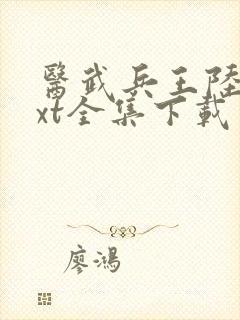 醫武兵王陸
xt全集下載
廖鴻